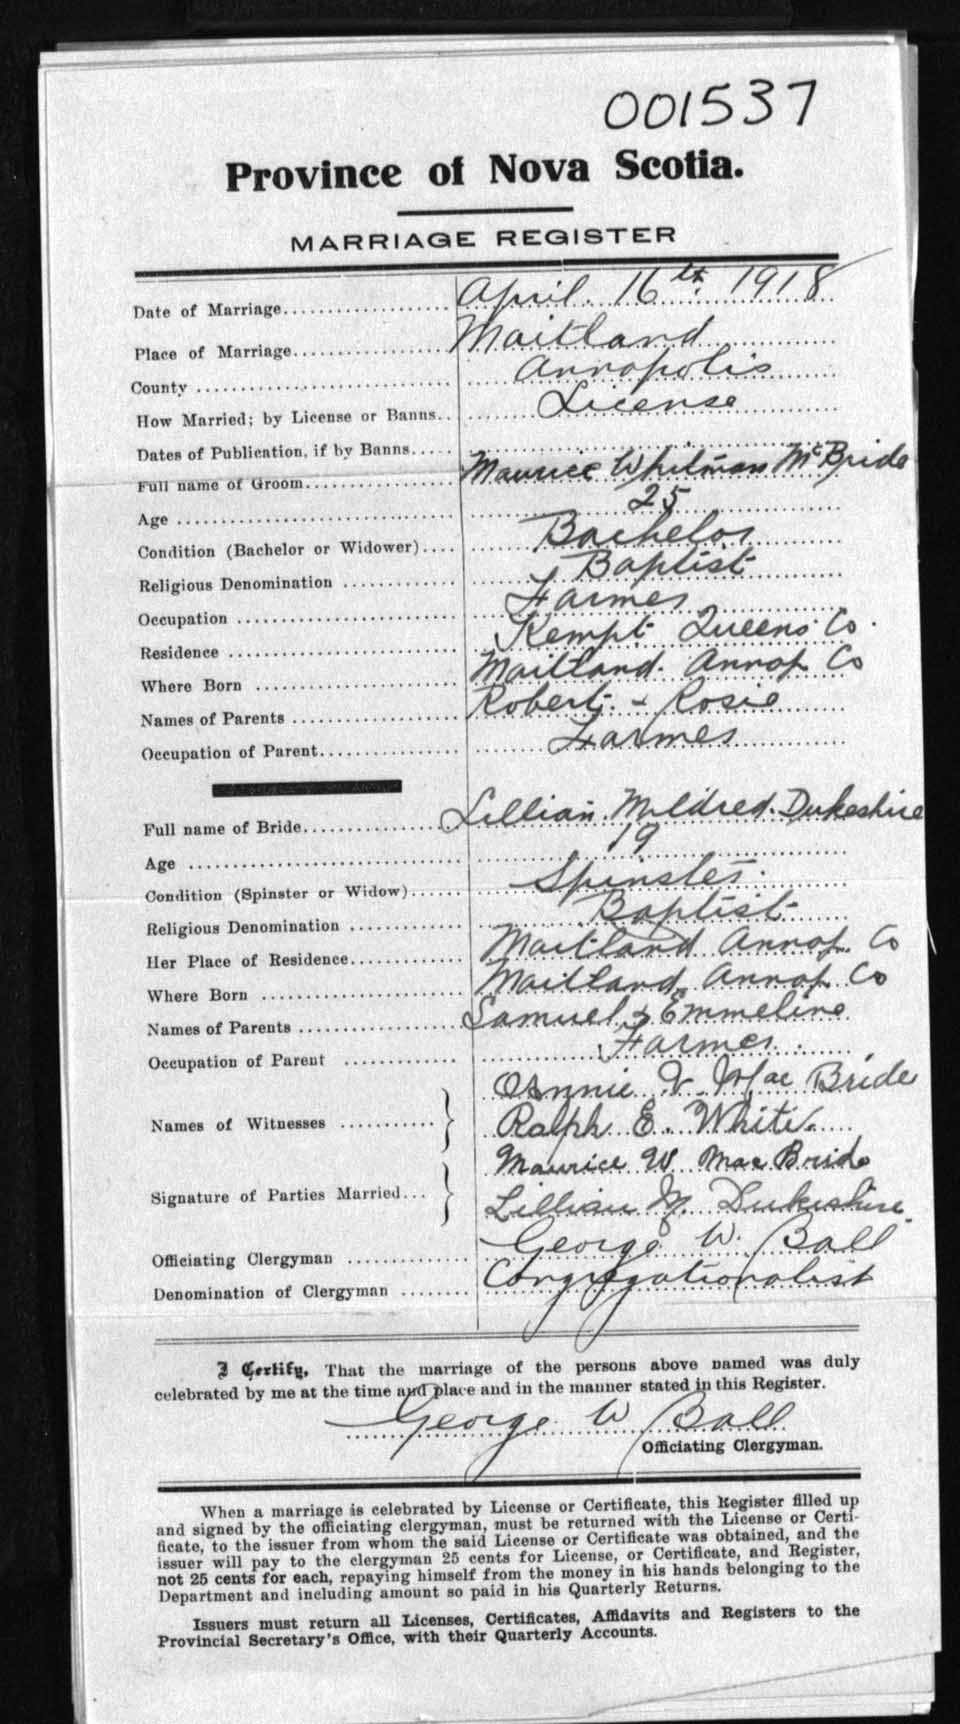 001537
Province of Nova Scotia.
MARRIAGE REGISTER
Date of Marriage.................... April. 16th. 1918
Place of Marriage.................... Maitland
County .................... Annapolis
How Married; by License or Banns.. License
Dates of Publication, if by Banns.....
Full name of Groom.................... Maurice Whitman McBride
Age .................... 25
Condition (Bachelor or Widower).... Bachelor
Religious Denomination ............ Baptist
Occupation .................... Farmer
Residence .................... Kempt Queens Co.
Where Born .................... Maitland. Annap. Co
Names of Parents .................... Robert. & Rosie
Occupation of Parent................ Farmer
Full name of Bride................ Lillian. Mildred. Dukeshire
Age .................... 19
Condition (Spinster or Widow)...... Spinster.
Religious Denomination ............ Baptist
Her Place of Residence............. Maitland Annap. Co
Where Born .................... Maitland, Annap. Co
Names of Parents ................ Samuel & Emmeline
Occupation of Parent ............ Farmer.
V. MacBride
Names of Witnesses ........... Ralph E. White.
Maurice W. MacBride
Signature of Parties Married... Lillian M. Dukeshire
Officiating Clergyman ............ George W. Ball
Denomination of Clergyman ........ Congregationalist
I Certify, That the marriage of the persons above named was duly
celebrated by me at the time and place and in the manner stated in this Register.
George W Ball
Officiating Clergyman.
When a marriage is celebrated by License or Certificate, this Register filled up
and signed by the officiating clergyman, must be returned with the License or Certi-
ficate, to the issuer from whom the said License or Certificate was obtained, and the
issuer will pay to the clergyman 25 cents for License, or Certificate, and Register,
not 25 cents for each, repaying himself from the money in his hands belonging to the
Department and including amount so paid in his Quarterly Returns.
Issuers must return all Licenses, Certificates, Affidavits and Registers to the
Provincial Secretary's Office, with their Quarterly Accounts.